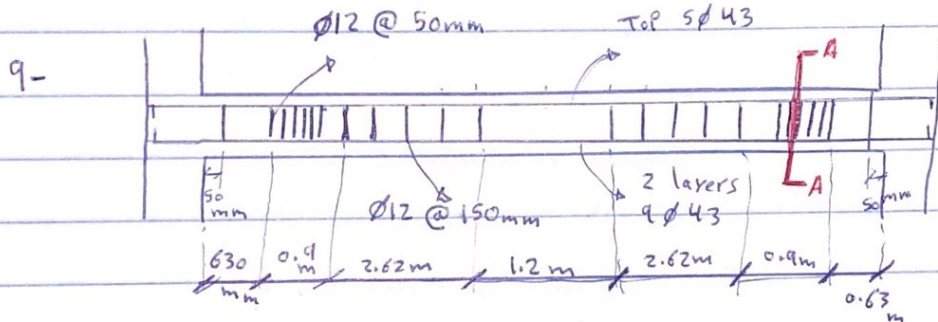 9-
Ø12 @ 50mm
Top 5Ø43
A
A
50 mm
Ø12 @ 150mm
2 layers
9Ø43
50mm
630 mm
0.9 m
2.62m
1.2 m
2.62m
0.9m
0.63 m